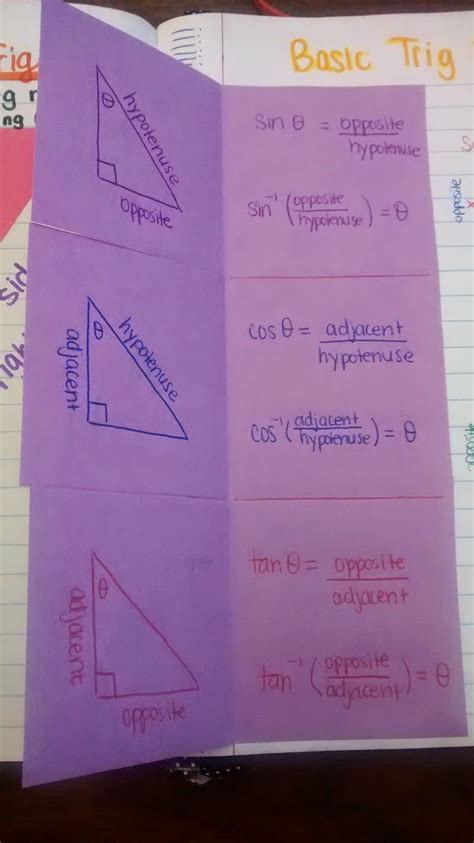 Basic Trig
θ
hypotenuse
opposite
sin θ = opposite/hypotenuse
sin⁻¹ (opposite/hypotenuse) = θ
θ
adjacent
hypotenuse
cos θ = adjacent/hypotenuse
cos⁻¹ (adjacent/hypotenuse) = θ
θ
adjacent
opposite
tan θ = opposite/adjacent
tan⁻¹ (opposite/adjacent) = θ
opposite
opposite